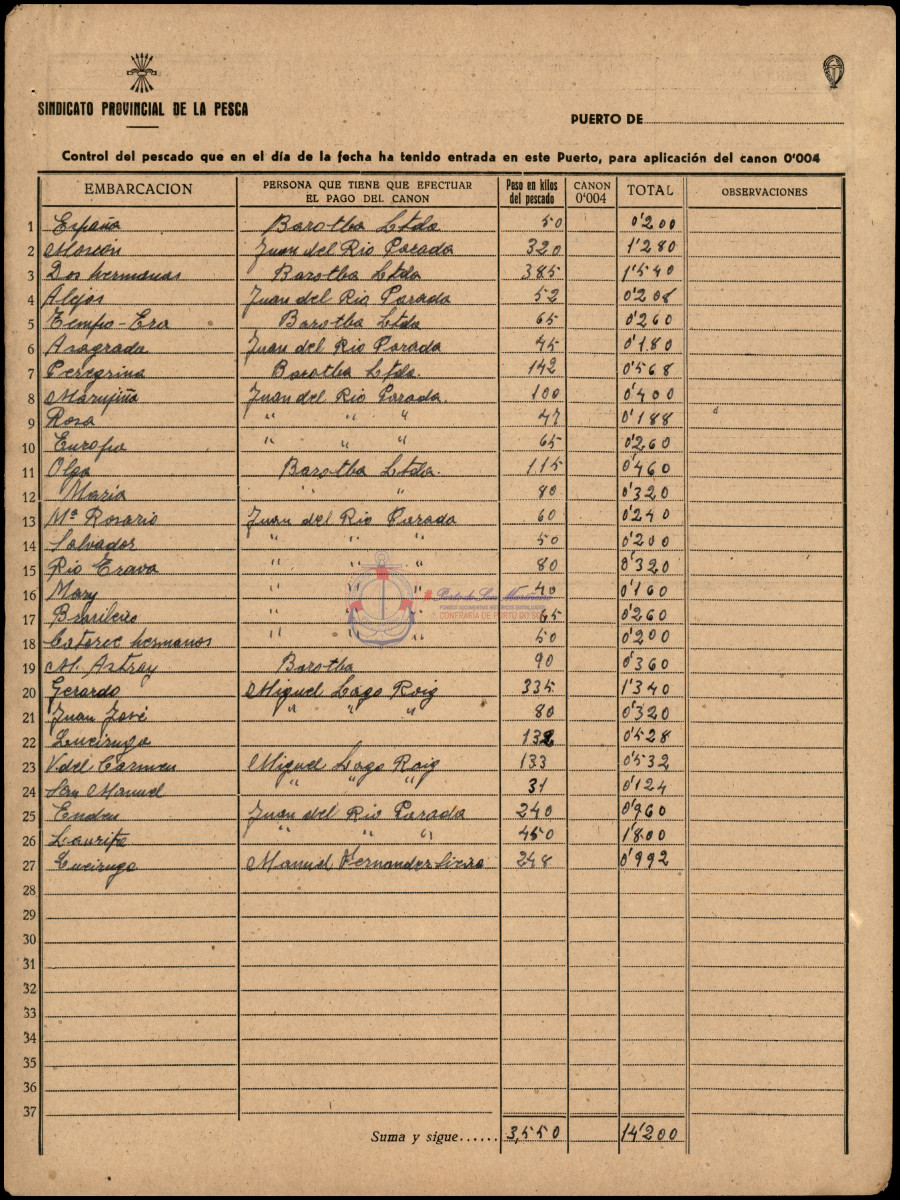 SINDICATO PROVINCIAL DE LA PESCA
PUERTO DE
Control del pescado que en el día de la fecha ha tenido entrada en este Puerto, para aplicación del canon 0'004
EMBARCACION PERSONA QUE TIENE QUE EFECTUAR EL PAGO DEL CANON Peso en kilos del pescado CANON 0'004 TOTAL OBSERVACIONES
1 España Barotba Ltda 50 0'200
2 Juan del Rio Parada 320 1'280
3 Dos hermanas Barotba Ltda 385 1'540
4 Alejos Juan del Rio Parada 52 0'208
5 Tempo-Era Barotba Ltda 65 0'260
6 Asagrada Juan del Rio Parada 45 0'180
7 Peregrina Barotba Ltda. 142 0'568
8 Marujiña Juan del Rio Parada. 100 0'400
9 Rosa " " " 47 0'188 "
10 Europa " " " 65 0'260
11 Olga Barotba Ltda. 115 0'460
12 Maria " " 80 0'320
13 Mª Rosario Juan del Rio Parada 60 0'240
14 Salvador " " " 50 0'200
15 Rio " " " 80 0'320
16 Mary " " " 40 0'160
17 Brasileiro " " 65 0'260
18 hermanos " " " 50 0'200
19 M. Astray Barotba 90 0'360
20 Gerardo Miguel Lago Roig 335 1'340
21 Juan José " " " 80 0'320
22 Luciruga 132 0'528
23 V del Carmen Miguel Lago Roig 133 0'532
24 San Manuel " " " 31 0'124
25 Juan del Rio Parada 240 0'960
26 Laurita " " " 450 1'800
27 Luciruga Manuel Fernandez 248 0'992
28
29
30
31
32
33
34
35
36
37
Suma y sigue...... 3,550 14'200
Porto de Son
CONFRARIA DE PORTO DO SON